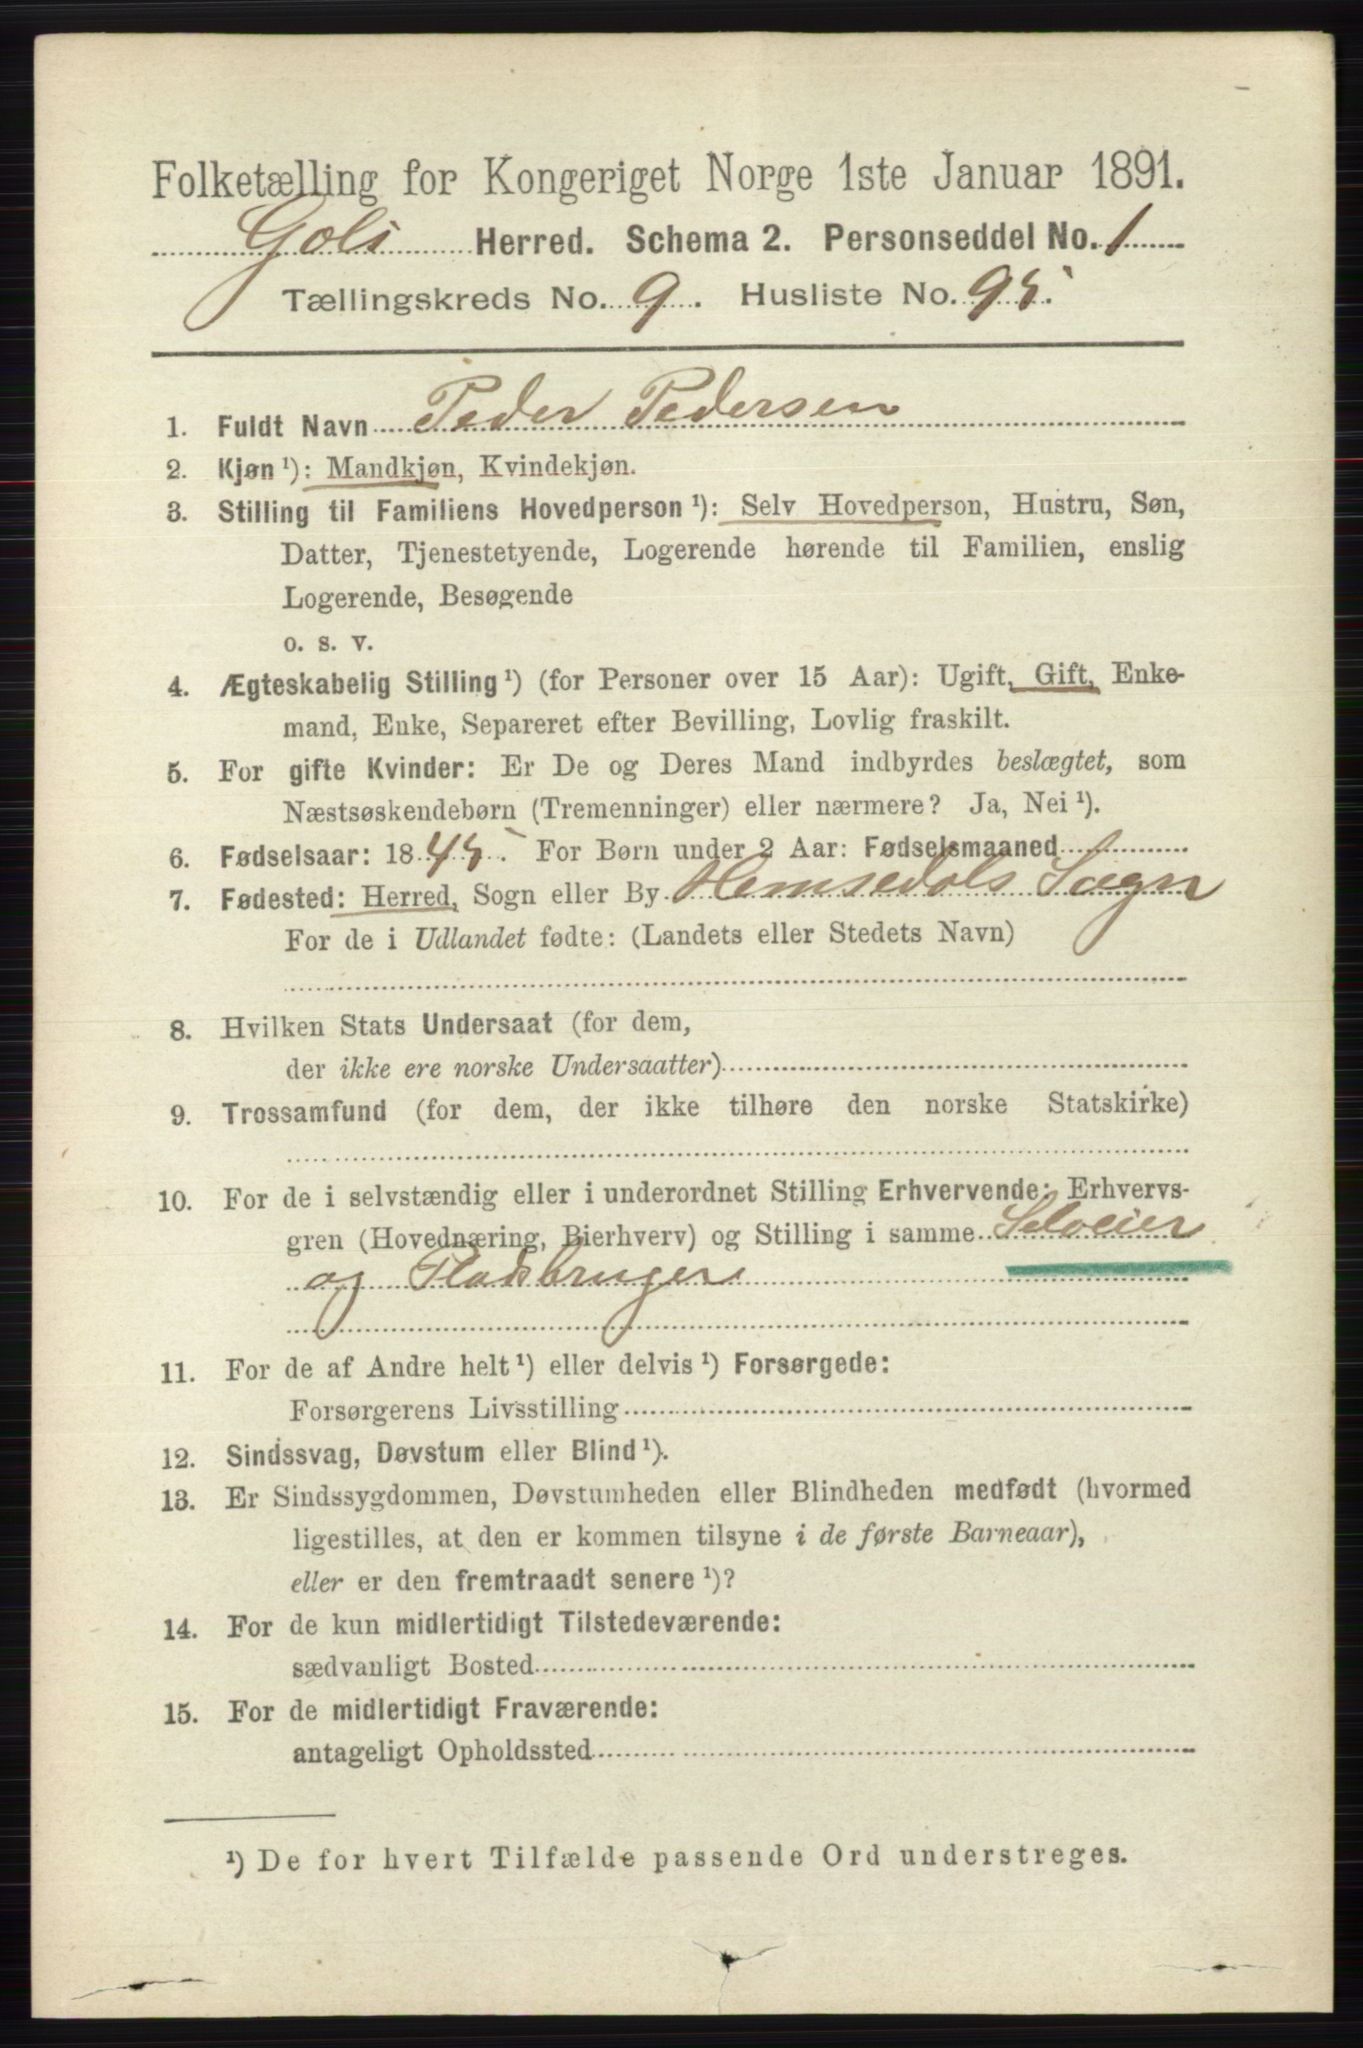 Folketælling for Kongeriget Norge 1ste Januar 1891.
Gols Herred. Schema 2. Personseddel No. 1
Tællingskreds No. 9. Husliste No. 95.
1. Fuldt Navn Peder Pedersen
2. Kjøn ¹): Mandkjøn, Kvindekjøn.
3. Stilling til Familiens Hovedperson ¹): Selv Hovedperson, Hustru, Søn,
Datter, Tjenestetyende, Logerende hørende til Familien, enslig
Logerende, Besøgende
o. s. v.
4. Ægteskabelig Stilling ¹) (for Personer over 15 Aar): Ugift, Gift, Enke-
mand, Enke, Separeret efter Bevilling, Lovlig fraskilt.
5. For gifte Kvinder: Er De og Deres Mand indbyrdes beslægtet, som
Næstsøskendebørn (Tremenninger) eller nærmere? Ja, Nei ¹).
6. Fødselsaar: 1845. For Børn under 2 Aar: Fødselsmaaned
7. Fødested: Herred, Sogn eller By Hemsedals Sogn
For de i Udlandet fødte: (Landets eller Stedets Navn)
8. Hvilken Stats Undersaat (for dem,
der ikke ere norske Undersaatter)
9. Trossamfund (for dem, der ikke tilhøre den norske Statskirke)
10. For de i selvstændig eller i underordnet Stilling Erhvervende: Erhvervs-
gren (Hovednæring, Bierhverv) og Stilling i samme Selveier
og Pladsbruger
11. For de af Andre helt ¹) eller delvis ¹) Forsørgede:
Forsørgerens Livsstilling
12. Sindssvag, Døvstum eller Blind ¹).
13. Er Sindssygdommen, Døvstumheden eller Blindheden medfødt (hvormed
ligestilles, at den er kommen tilsyne i de første Barneaar),
eller er den fremtraadt senere ¹)?
14. For de kun midlertidigt Tilstedeværende:
sædvanligt Bosted
15. For de midlertidigt Fraværende:
antageligt Opholdssted
¹) De for hvert Tilfælde passende Ord understreges.